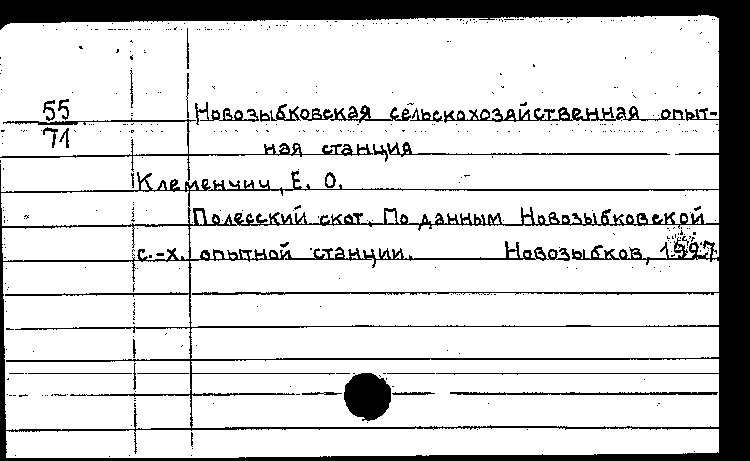 55
71
Новозыбковская сельскохозяйственная опыт-
ная станция
Клеменчич, Е. О.
Полесский скот. По данным Новозыбковской
с.-х. опытной станции. Новозыбков, 1927